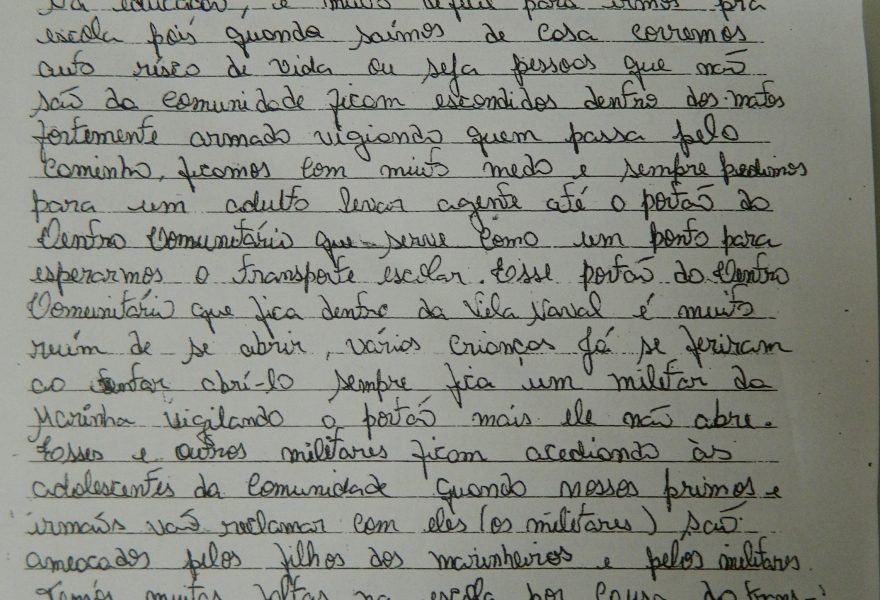 Na educação, é muito difícil para irmos pra
escola pois quando saímos de casa corremos
auto risco de vida ou seja pessoas que não
são da comunidade ficam escondidos dentro dos matos
fortemente armado vigiando quem passa pelo
Caminho, ficamos com muito medo e sempre pedimos
para um adulto levar agente até o portão do
Centro Comunitário que serve como um ponto para
esperarmos o transporte escolar. Esse portão do Centro
Comunitário que fica dentro da Vila Naval é muito
ruím de se abrir, vários crianças já se feriram
ao tentar abrí-lo sempre fica um militar da
Marinha vigilando o portão mais ele não abre.
Esses e outros militares ficam acediando às
adolescentes da Comunidade quando nossos primos e
irmaõs vão reclamar com eles (os militares) são
ameaçados pelos filhos dos marinheiros e pelos militares.
Temos muitas faltas na escola por causa do trans-